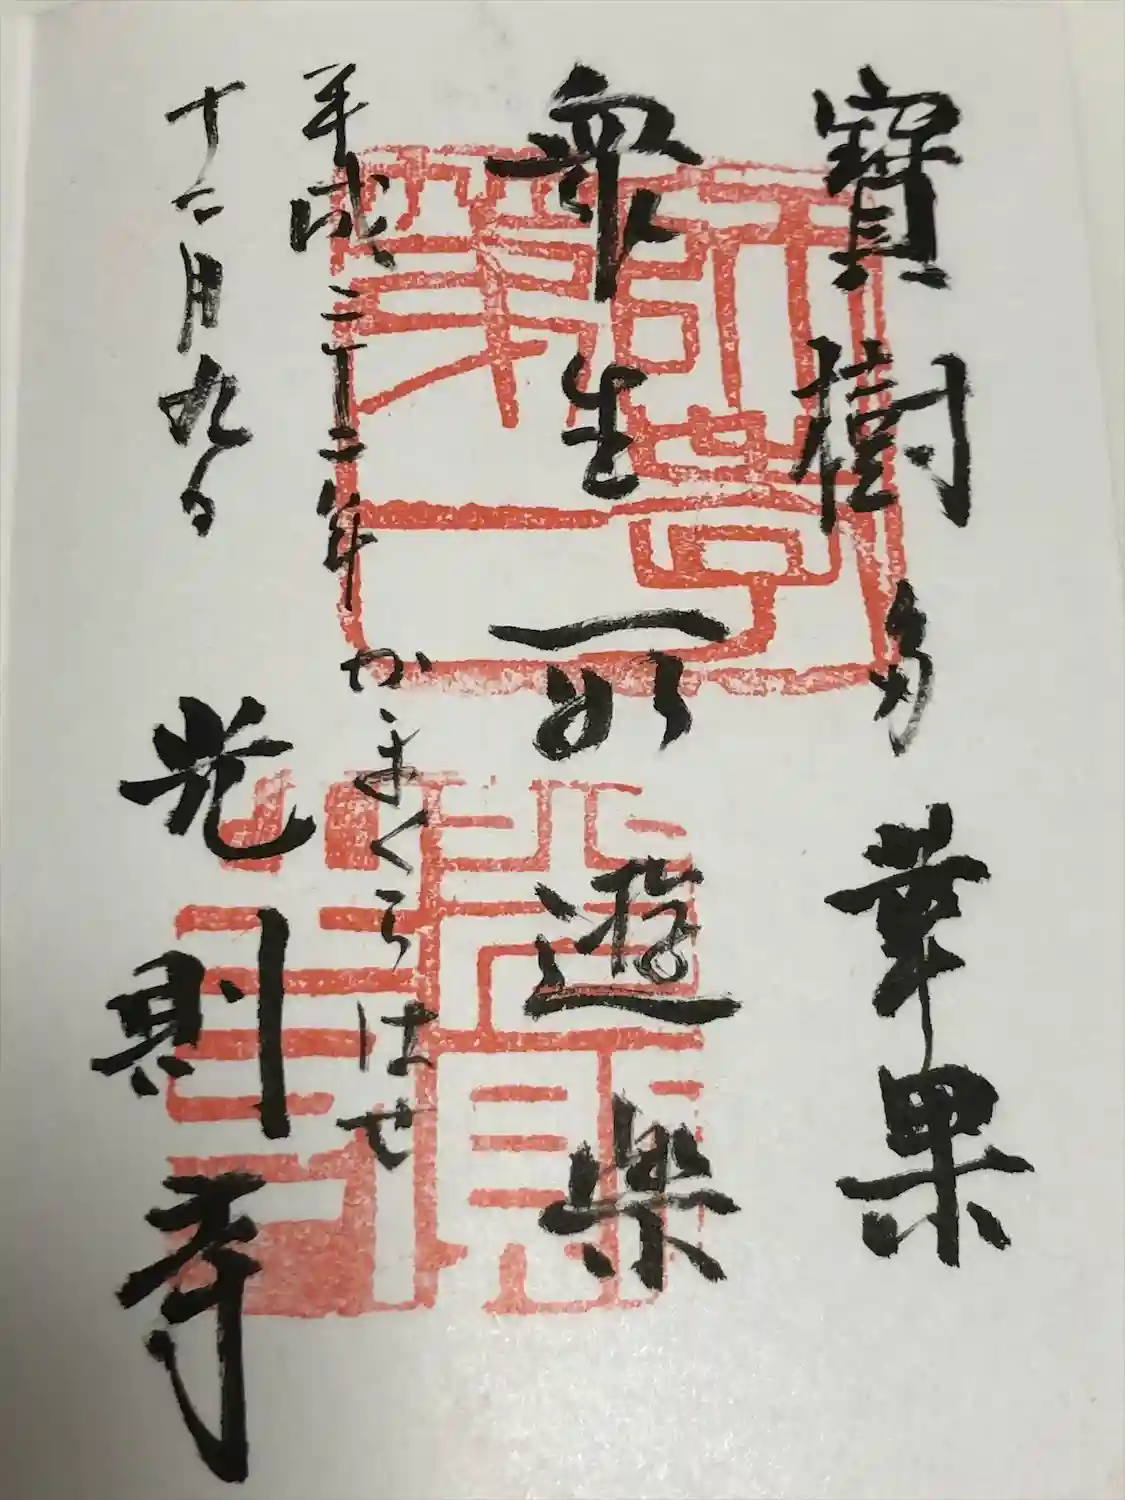 寶樹多華果
衆生所遊樂
平成二十二年
十二月九日
かまくらはせ
光則寺
師孝第一